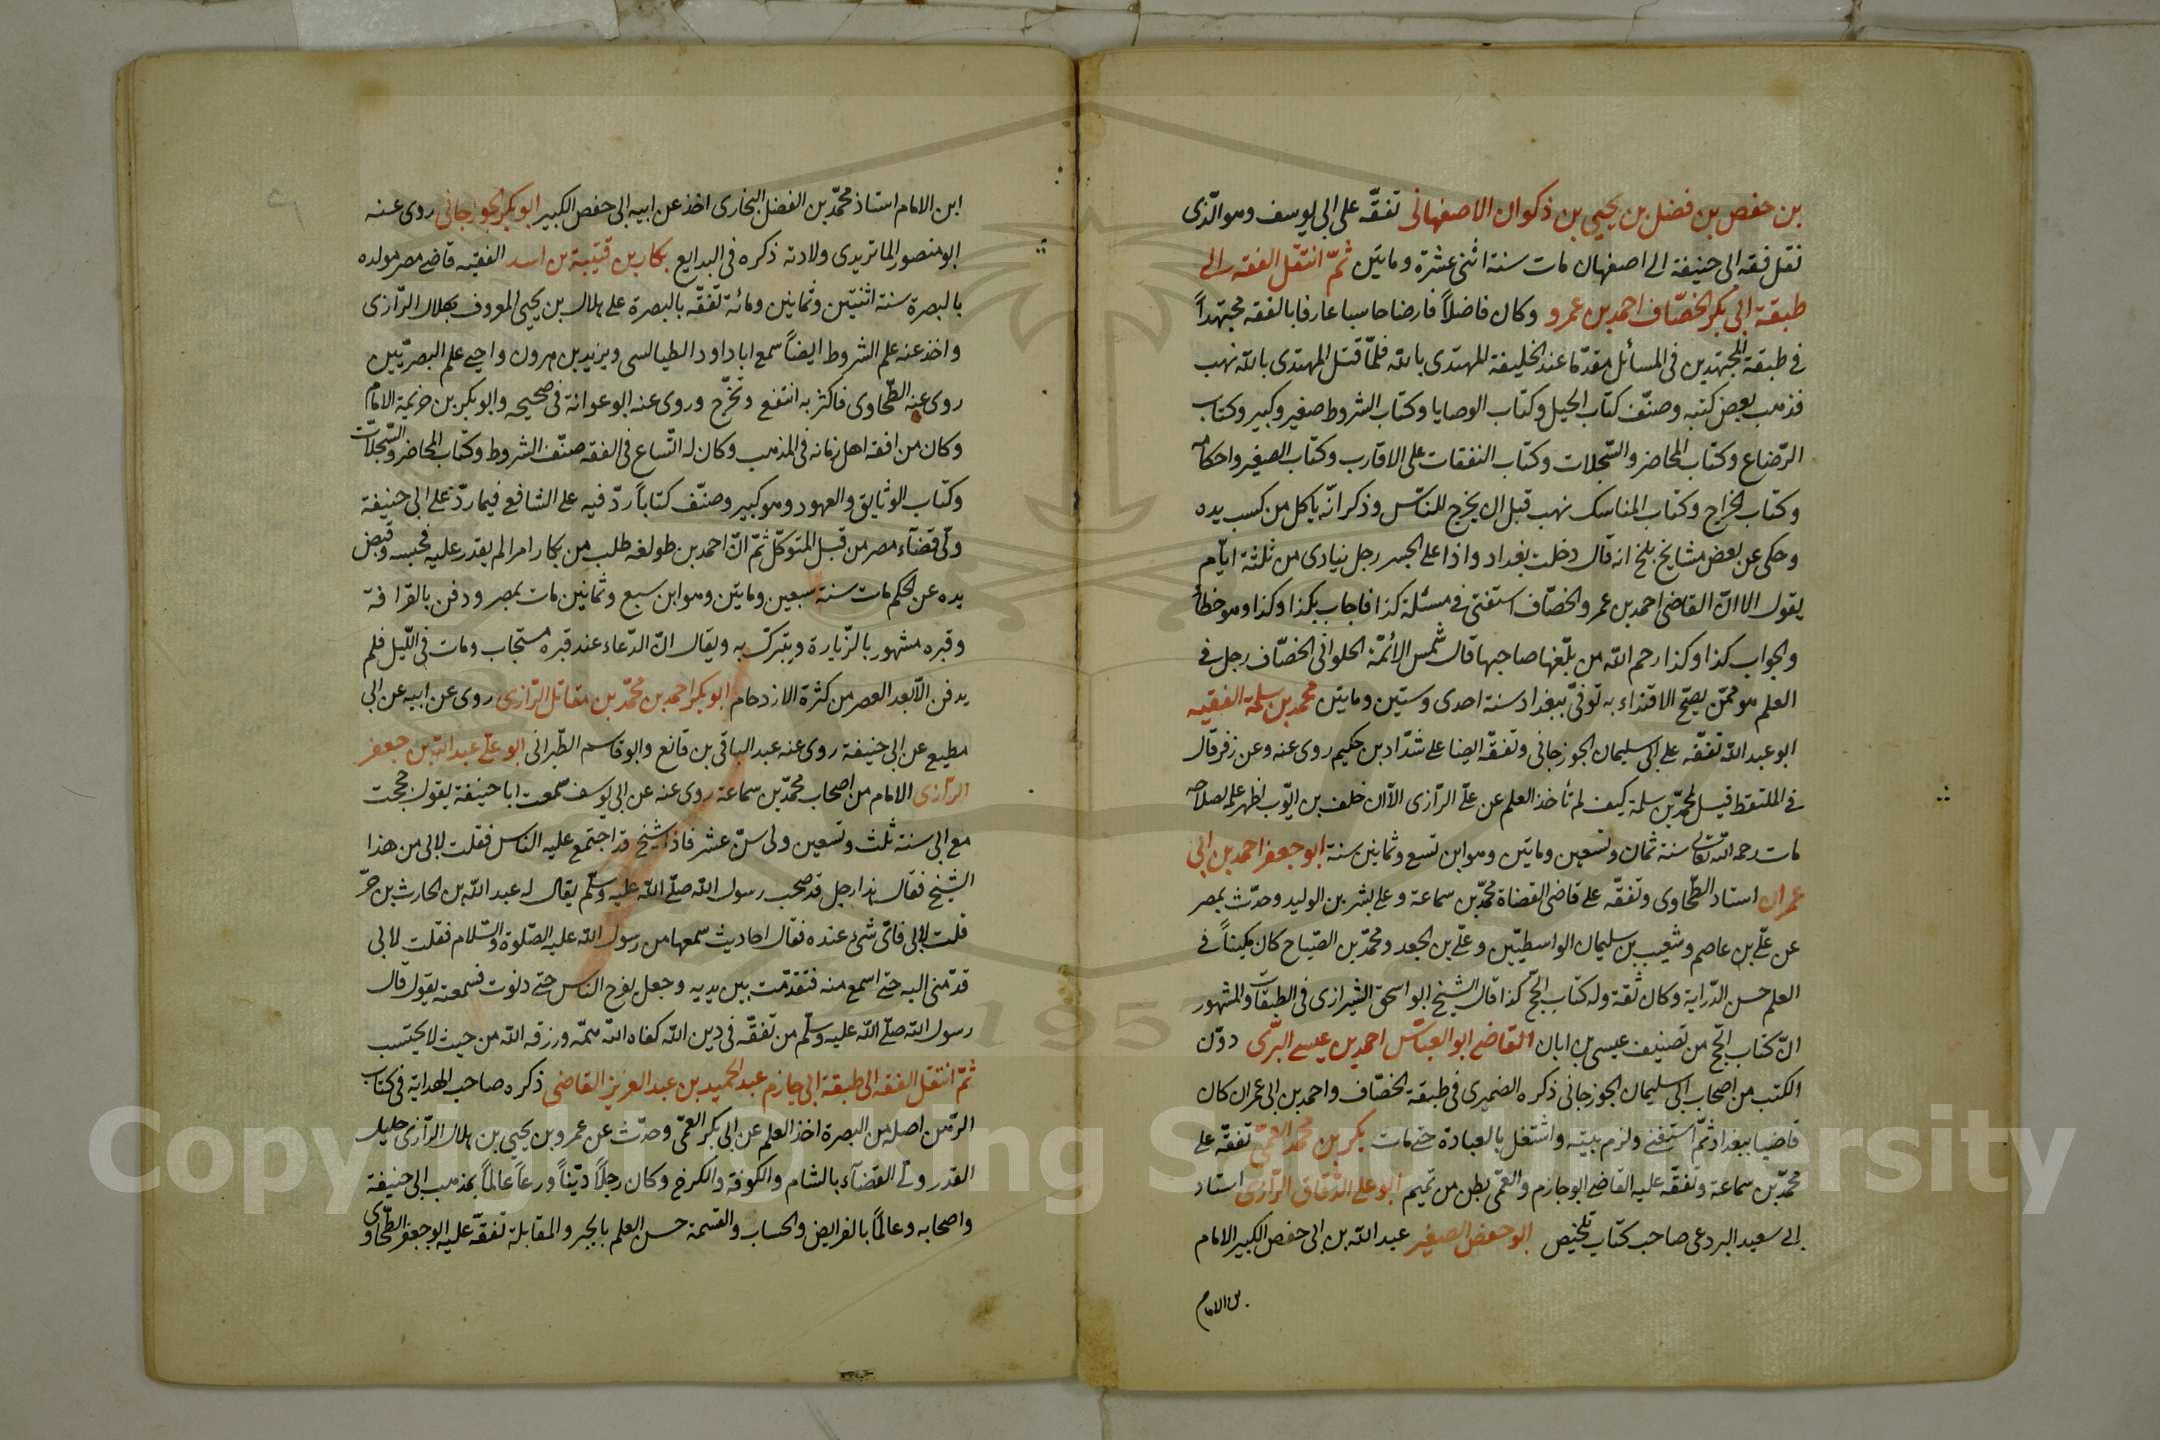 بن حفص بن فضل بن يحيى بن ذكوان الاصفهانى تفقّه على ابى يوسف وهو الّذى
نقل فقه ابى حنيفة الى اصفهان مات سنة اثنى عشرة ومايتين ثمّ انتقل الفقه الى
طبقة ابى بكر الخصّاف احمد بن عمرو وكان فاضلاً فارضا حاسبا عارفا بالفقه مجتهداً
فى طبقة المجتهدين فى المسائل مقدّما عند الخليفة المهتدى بالله فلمّا قتل المهتدى بالله نهب
فذهب بعض كتبه وصنّف كتاب الحيل وكتاب الوصايا وكتاب الشروط صغير وكبير وكتاب
الرّضاع وكتاب المحاضر والسّجلات وكتاب النفقات على الاقارب وكتاب الصغير واحكامه
وكتاب الخراج وكتاب المناسك نهب قبل ان يخرج للنّاس وذكر انّه ياكل من كسب يده
وحكى عن بعض مشايخ بلخ انه قال دخلت بغداد واذا على الجسر رجل ينادى من ثلثة ايّام
يقول الا انّ القاضى احمد بن عمرو الخصّاف استفتى فى مسئلة كذا فاجاب بكذا وكذا وهو خطأ
والجواب كذا وكذا رحم الله من بلّغها صاحبها قال شمس الأئمّة الحلوانى الخصّاف رجل فى
العلم هو ممّن يصحّ الاقتداء به توفىّ ببغداد سنة احدى وستين ومايتين محمد بن سلمة الفقيه
ابو عبد الله تفقّه على ابى سليمان الجوزجانى وتفقّه ايضا على شدّاد بن حكيم روى عنه وعن زفر قال
فى الملتقط قيل لمحمّد بن سلمة كيف لم تأخذ العلم عن علّى الرّازى الّا ان خلف بن ايّوب اظهر علمه بصلاحه
مات رحمه الله تعالى سنة ثمان وتسعين ومايتين وهو ابن تسع وثمانين سنة ابو جعفر احمد بن ابى
عمران استاد الطّحاوى وتفقّه على قاضى القضاة محمّد بن سماعة وعلى بشر بن الوليد وحدّث بمصر
عن علّى بن عاصم وشعيب بن سليمان الواسطيّين وعلّى بن الجعد ومحمّد بن الصّباح كان مكيناً فى
العلم حسن الدّراية وكان ثقة وله كتاب الحجّ كذا قال الشيخ ابو اسحق الشيرازى فى الطبقات والمشهور
انّ كتاب الحّج من تصنيف عيسى بن ابان القاضى ابو العبّاس احمد بن عيسى البرّتى دوّن
الكتب من اصحاب ابى سليمان الجوزجانى ذكره الصّيمرى فى طبقة الخصّاف واحمد بن ابى عمران كان
قاضيا ببغداد ثمّ استعفى ولزم بيته واشتغل بالعبادة حتى مات بكر بن محمد العمّى تفقّه على
محمّد بن سماعة وتفقّه عليه القاضى ابو حازم والعمّى بطن من تميم ابو على الدّقّاق الرّازى استاد
ابى سعيد البردعى صاحب كتاب تلخيص ابو حفص الصغير عبد الله بن ابى حفص الكبير الامام
بن الامام
ابن الامام استاذ محمّد بن الفضل البخارى اخذ عن ابيه ابى حفص الكبير ابو بكر الجوزجانى روى عنه
ابو منصور الماتريدى ولادته ذكره فى البدايع بكار بن قتيبة بن اسد الفقيه قاضى مصر مولده
بالبصرة سنة اثنتين وثمانين ومائة تفقّه بالبصرة على هلال بن يحيى المعروف بهلال الرّازى
واخذ عنه علم الشروط ايضاً سمع ابا داود الطيالسى ويزيد بن هرون واحيى علم البصريّين
روى عنه الطّحاوى فاكثر به انتفع وتخرّج وروى عنه ابو عوانة فى صحيحه وابو بكر بن خزيمة الامام
وكان من افقه اهل زمانه فى المذهب وكان له اتّساع فى الفقه صنّف الشروط وكتاب المحاضر والسّجلّات
وكتاب الوثايق والعهود وهو كبير وصنّف كتاباً ردّ فيه على الشافعى فيما ردّ على ابى حنيفة
ولّى قضآء مصر من قبل المتوكّل ثمّ انّ احمد بن طولغه طلب من بكار امرا لم يقدر عليه فحبسه وقبض
يده عن الحكم مات سنة سبعين ومايتين وهو ابن سبع وثمانين مات بمصر ودفن بالقرافة
وقبره مشهور بالزّيارة ويتبرّك به ويقال انّ الدّعاء عند قبره مستجاب ومات فى اللّيل فلم
يدفن الّا بعد العصر من كثرة الازدحام ابو بكر احمد بن محمّد بن مقاتل الرّازى روى عن ابيه عن ابى
مطيع عن ابى حنيفة روى عنه عبد الباقى بن قانع وابو قاسم الطّبرانى ابو علّى عبد الله بن جعفر
الرّازى الامام من اصحاب محمّد بن سماعة روى عنه عن ابى يوسف سمعت ابا حنيفة يقول حججت
مع ابى سنة ثلث وتسعين ولى ستّ عشر فاذا شيخ قد اجتمع عليه الناس فقلت لابى من هذا
الشيخ فقال هذا رجل قد صحب رسول الله صلّى الله عليه وسلّم يقال له عبد الله بن الحارث بن جزّ
قلت لابى فاىّ شىء عنده فقال احاديث سمعها من رسول الله عليه الصّلوة والسّلام فقلت لابى
قدّمنى اليه حتى اسمع منه فتقدّمت بين يديه وجعل يفرج الناس حتى دنوت فسمعته يقول قال
رسول الله صلّى الله عليه وسلّم من تفقّه فى دين الله كفاه الله همّه ورزقه الله من حيث لا يحتسب
ثمّ انتقل الفقه الى طبقة ابى حازم عبد الحميد بن عبد العزيز القاضى ذكره صاحب الهداية فى كتاب
الرّهن اصله من البصرة اخذ العلم عن ابى بكر العمّى وحدّث عن عمرو بن يحيى بن هلال الرّازى جليل
القدر ولّى القضآء بالشام والكوفة والكرخ وكان رجلاً ديّناً ورعاً عالماً بمذهب ابى حنيفة
واصحابه وعالماً بالفرايض والحساب والقسمة حسن العلم بالجبر والمقابلة تفقّه عليه ابو جعفر الطّحاوى
Copyright © King Saud University
1957